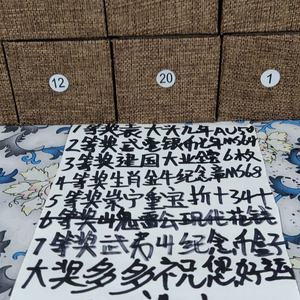 12
20
1
1等奖袁大头九年AU50
2等奖武夷银币九年MS69
3等奖建国大业金6枚
4等奖生肖金牛纪念章MS68
5等奖崇宁重宝折十34+
6等奖山鬼
7等奖武夷山纪念币盒子
大奖多多祝您好运